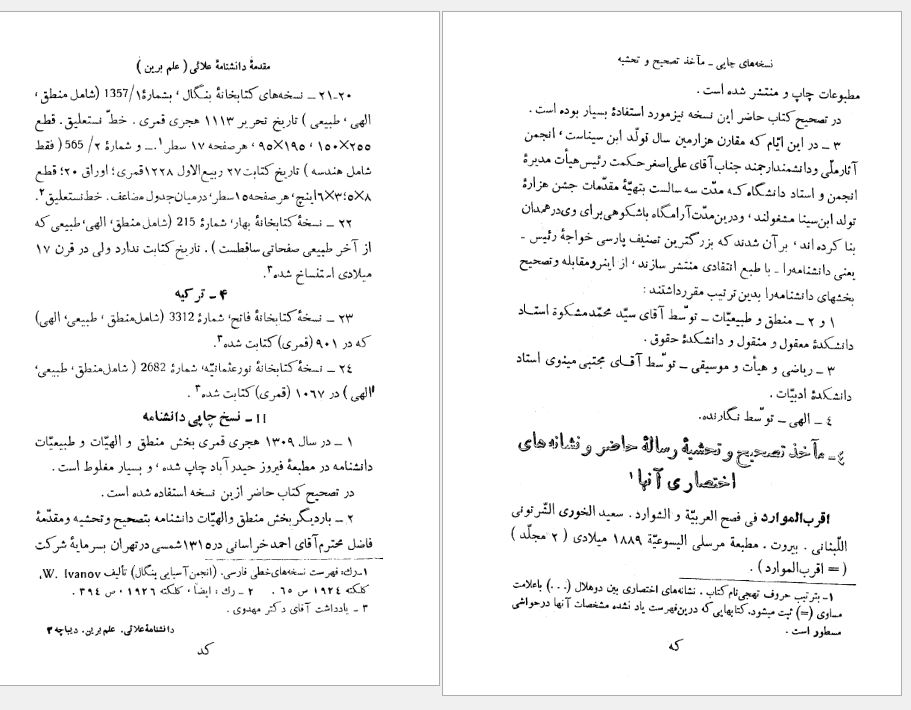 مقدمهٔ دانشنامهٔ علائی ( علم برین )
۲۰-۲۱ – نسخه‌های کتابخانهٔ بنگال، بشمارهٔ ۱/1357 (شامل منطق،
الهی، طبیعی ) تاریخ تحریر ۱۱۱۳ هجری قمری . خطّ نستعلیق . قطع
۲۵۵×۱۵۰، ۱۹۵×۹۵، هر صفحه ۱۷ سطر۱._ و شمارهٔ ۲/ 565 ( فقط
شامل هندسه ) تاریخ کتابت ۲۷ ربیع‌الاول ۱۲۲۸ قمری؛ اوراق ۲۰؛ قطع
۸×۵؛ ۳×۶ اینچ، هر صفحه ۱۵ سطر، در میان جدول مضاعف. خط نستعلیق۲.
۲۲ – نسخهٔ کتابخانهٔ بهار، شمارهٔ 215 (شامل منطق، الهی، طبیعی که
از آخر طبیعی صفحاتی ساقطست ) . تاریخ کتابت ندارد ولی در قرن ۱۷
میلادی استنساخ شده۳.
۴ – ترکیه
۲۳ – نسخهٔ کتابخانهٔ فاتح، شمارهٔ 3312 (شامل منطق ، طبیعی، الهی)
که در ۹۰۱ (قمری) کتابت شده۳.
۲٤ – نسخهٔ کتابخانهٔ نورعثمانیّه، شمارهٔ 2682 ( شامل منطق، طبیعی،
الهی ) در ۱۰۶۷ (قمری) کتابت شده۳ .
II – نسخ چاپی دانشنامه
۱ – در سال ۱۳۰۹ هجری قمری بخش منطق و الهیّات و طبیعیّات
دانشنامه در مطبعهٔ فیروز حیدرآباد چاپ شده ، و بسیار مغلوط است .
در تصحیح کتاب حاضر ازین نسخه استفاده شده است .
۲ – بار دیگر بخش منطق والهیّات دانشنامه بتصحیح وتحشیه ومقدّمهٔ
فاضل محترم آقای احمد خراسانی در ۱۳۱۵ شمسی در تهران بسرمایهٔ شرکت
۱–رك: فهرست نسخه‌های خطی فارسی. (انجمن آسیایی بنگال) تألیف W. Ivanov،
کلکته ۱۹۲٤ ص ٦٥ . ۲ – رك : ایضاً ، کلکته ۱۹۲٦ ، ص ۳۹٤ .
۳ – یادداشت آقای دکتر مهدوی .
دانشنامهٔ علائی. علم برین. دیباچه ۳
کد
نسخه‌های چاپی – مآخذ تصحیح و تحشیه
مطبوعات چاپ و منتشر شده است .
در تصحیح کتاب حاضر این نسخه نیز مورد استفادهٔ بسیار بوده است .
۳ – در این ایّام که مقارن هزارمین سال تولّد ابن سیناست، انجمن
آثار ملّی ودانشمند ارجمند جناب آقای علی‌اصغر حکمت رئیس هیأت مدیرهٔ
انجمن و استاد دانشگاه کـه مدّت سه سالست بتهیّهٔ مقدّمات جشن هزارهٔ
تولد ابن‌سینا مشغولند، ودرین‌مدّت آرامگاه باشکوهی برای وی در همدان
بنا کرده اند، بر آن شدند که بزرگترین تصنیف پارسی خواجهٔ رئیس –
یعنی دانشنامه‌را – با طبع انتقادی منتشر سازند ، از اینرو مقابله وتصحیح
بخشهای دانشنامه‌را بدین ترتیب مقرر داشتند :
۱ و ۲ – منطق و طبیعیّات – توسّط آقای سیّد محمّد مشکوة استـاد
دانشکدهٔ معقول و منقول و دانشکدهٔ حقوق .
۳ – ریاضی و هیأت و موسیقی – توسّط آقـای مجتبی مینوی استاد
دانشکدهٔ ادبیّات .
٤ – الهی – توسّط نگارنده.
٤– مآخذ تصحیح و تحشیهٔ رسالهٔ حاضر و نشانه‌های
اختصاری آنها۱
اقرب‌الموارد فی فصح العربیّة و الشوارد . سعید الخوری الشّرتونی
اللّبنانی . بیروت . مطبعهٔ مرسلی الیسوعیّة ۱۸۸۹ میلادی ( ۲ مجلّد )
( = اقرب‌الموارد ) .
۱– بترتیب حروف تهجی نام کتاب . نشانه‌های اختصاری بین دوهلال (...) باعلامت
مساوی (=) ثبت میشود. کتابهایی که درین فهرست یاد نشده مشخصات آنها در حواشی
مسطور است .
که